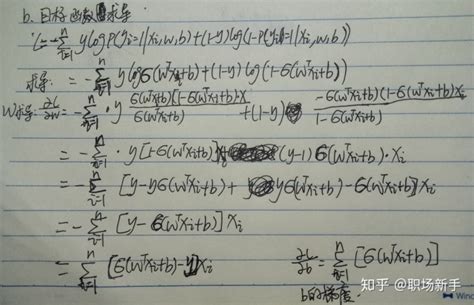 b. 目标函数求导
L=-∑_{i=1}^{n} y log P(y_i=1|x_i,w,b)+(1-y)log(1-P(y_i=1|x_i,w,b))
求导: = -∑_{i=1}^{n} y log б(wᵀx_i+b)+(1-y)log(1-б(wᵀx_i+b))
W求导: ∂L/∂w = -∑_{i=1}^{n} · y б(wᵀx_i+b)[1-б(wᵀx_i+b)]x_i / б(wᵀx_i+b) +(1-y) -б(wᵀx_i+b)(1-б(wᵀx_i+b))x_i / 1-б(wᵀx_i+b)
= -∑_{i=1}^{n} · y[1-б(wᵀx_i+b)] (y-1) б(wᵀx_i+b) · x_i
= -∑_{i=1}^{n} [y-yб(wᵀx_i+b) + yб(wᵀx_i+b)-б(wᵀx_i+b)] x_i
= -∑_{i=1}^{n} [y-б(wᵀx_i+b)] x_i
= ∑_{i=1}^{n} [б(wᵀx_i+b)-y] x_i
∂L/∂b = ∑_{i=1}^{n} [б(wᵀx_i+b)]
b的梯度.
知乎 @职场新手